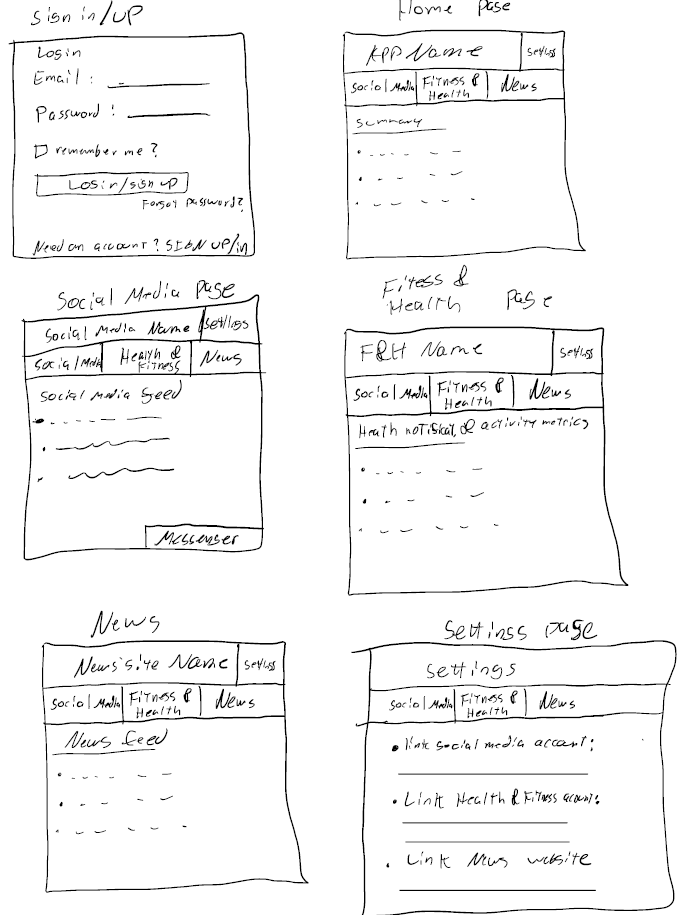 Sign in/up
Login
Email :
Password :
remember me ?
Login/sign up
Forgot password?
Need an account ? SIGN UP/in
Home page
APP Name
settings
Social Media
Fitness &
Health
News
Summary
Social Media page
Social Media Name
settings
Social Media
Health &
Fitness
News
Social media feed
Messenger
Fitess &
Health page
F&H Name
settings
Social Media
Fitness &
Health
News
Heath notificat. & activity metrics
News
News site Name
settings
Social Media
Fitness &
Health
News
News feed
Settings page
settings
Social Media
Fitness &
Health
News
link social media account :
Link Health & Fitness account :
Link News website